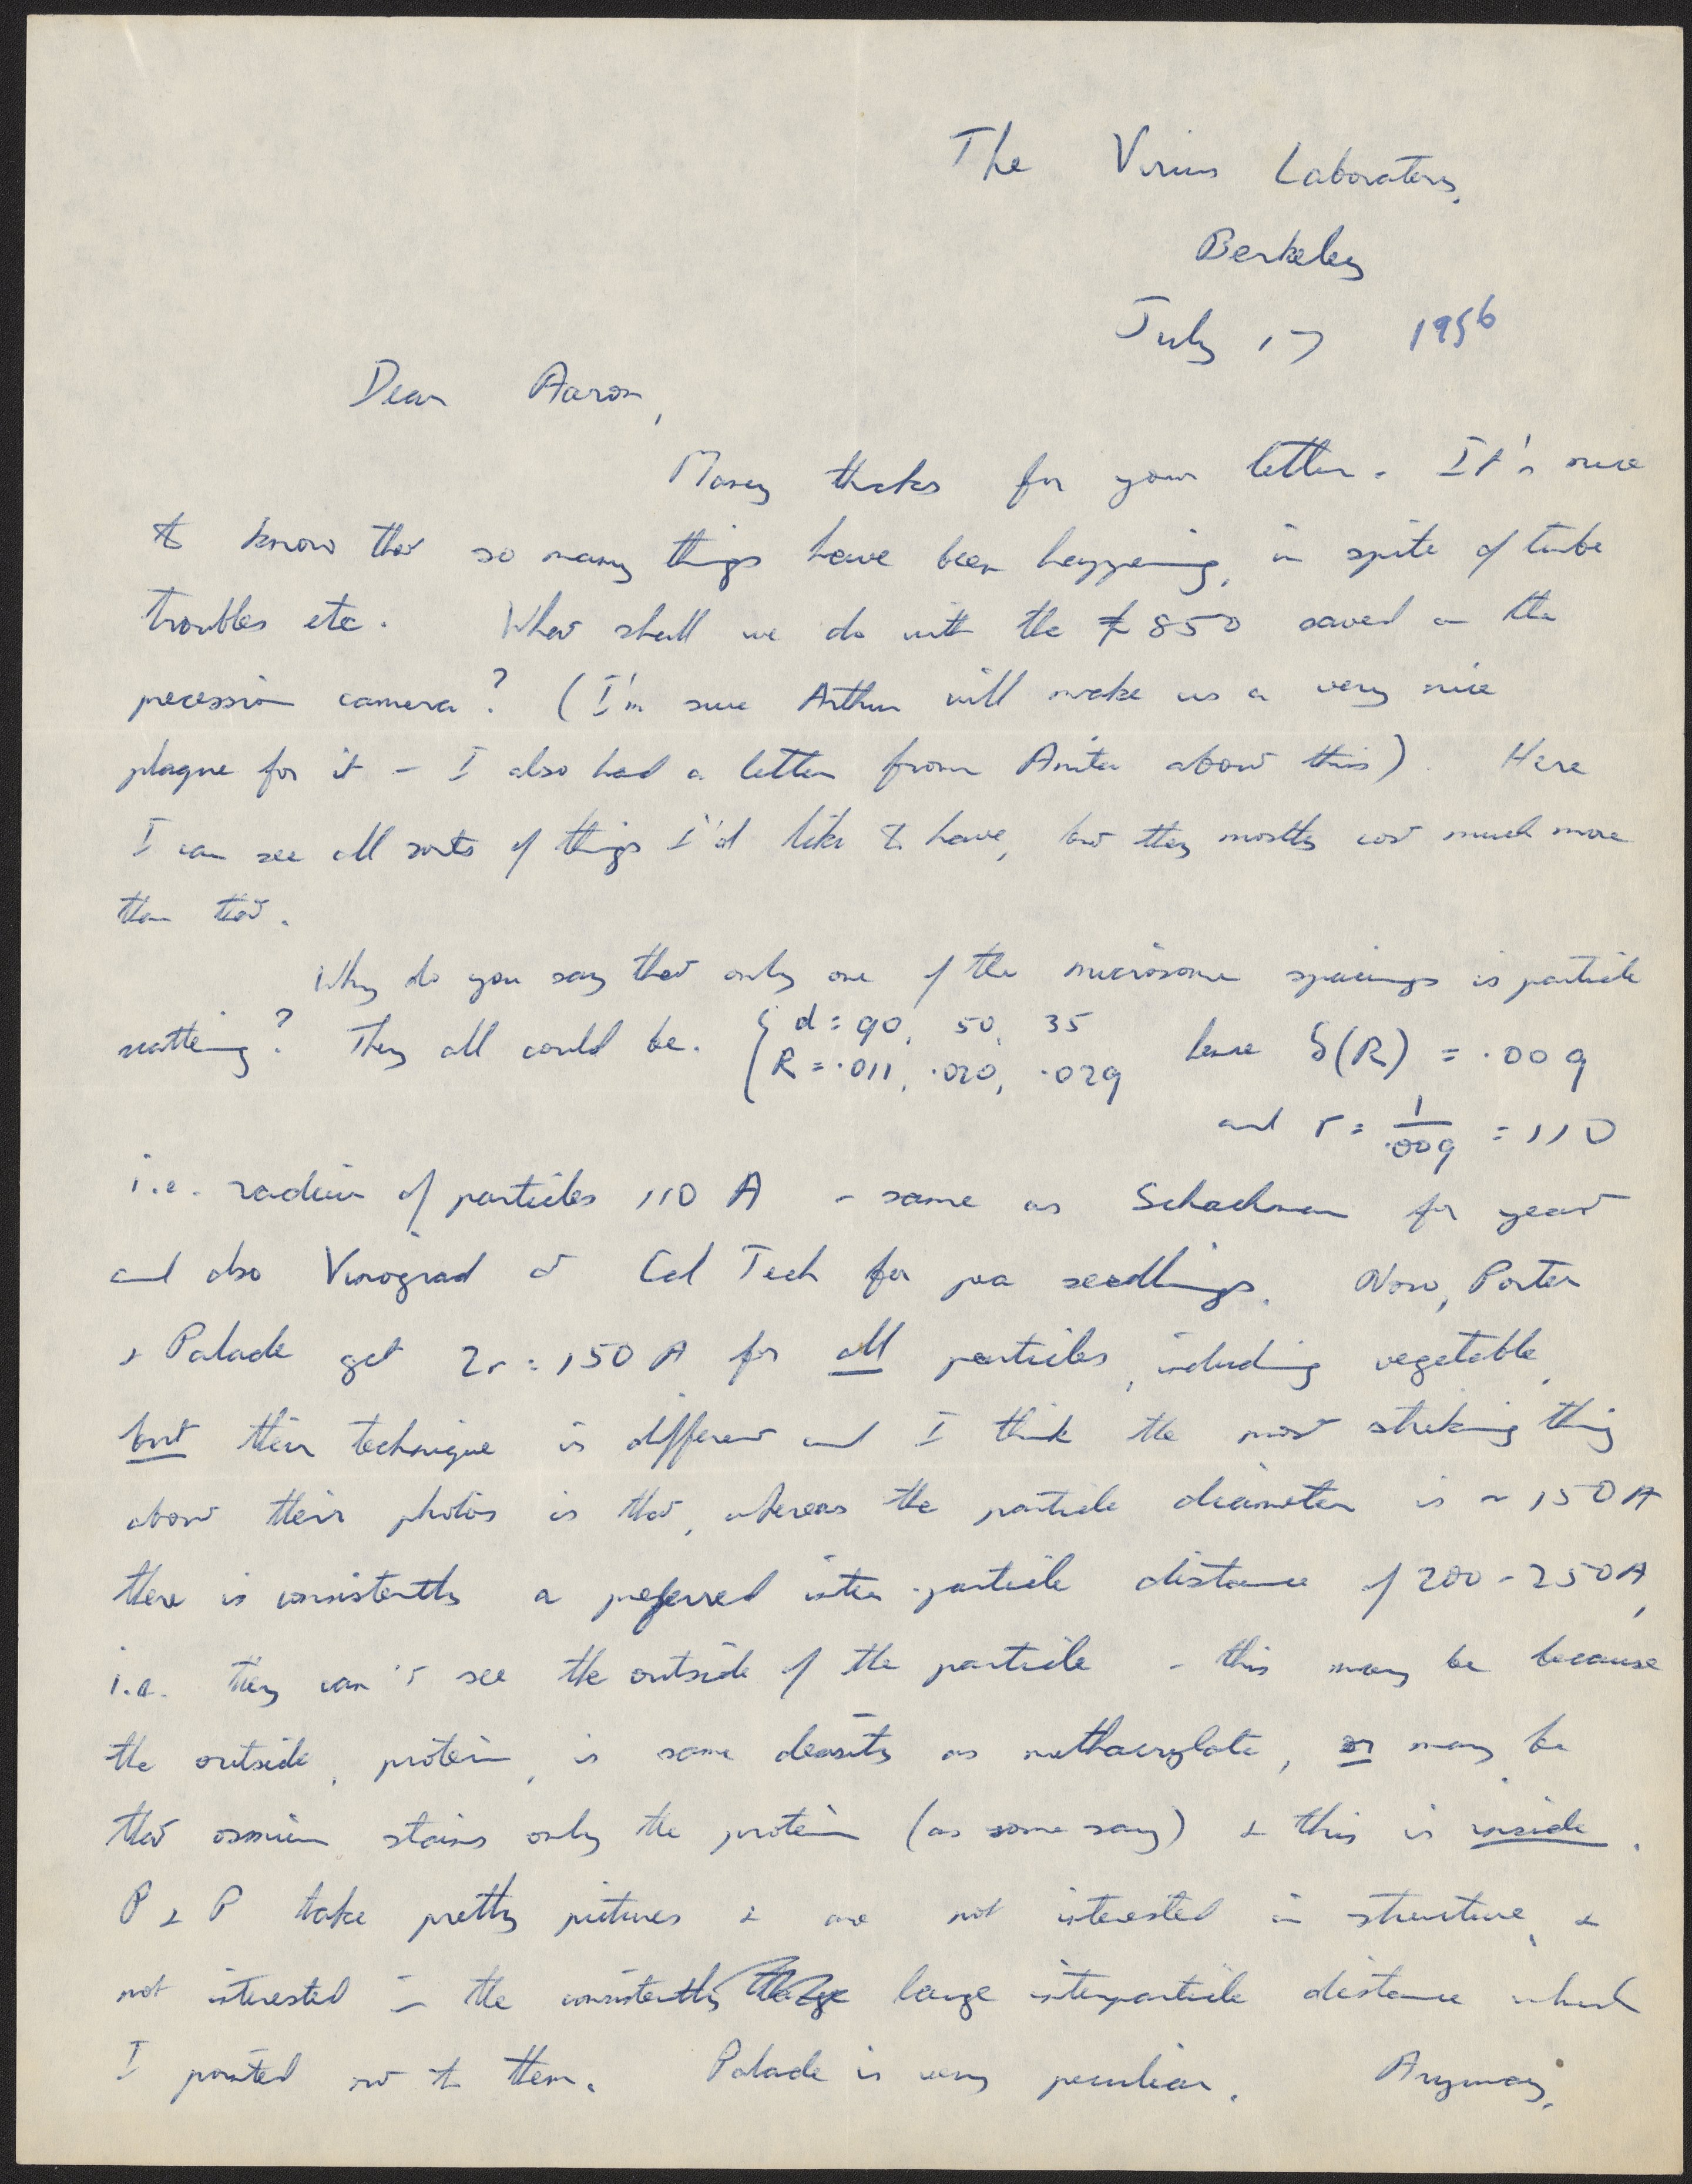 The Virus Laboratory,
Berkeley
July 17 1956
Dear Aaron,
Many thanks for your letter. It's nice
to know that so many things have been happening, in spite of tube
troubles etc. What shall we do with the £850 saved on the
precession camera? (I'm sure Arthur will make us a very nice
plaque for it – I also had a letter from Anita about this). Here
I can see all sorts of things I'd like to have, but they mostly cost much more
than that.
Why do you say that only one of the microsome spacings is particle
scattering? They all could be. { d = 90, 50, 35
R = .011, .020, .029 hence δ(R) = .009
and r = 1/.009 = 110
i.e. radius of particles 110 A – same as Schachman for yeast
and also Vinograd at Cal Tech for pea seedlings. Now, Porter
& Palade get 2r = 150 A for all particles, including vegetable,
but their technique is different and I think the most striking thing
about their photos is that, whereas the particle diameter is ~ 150 A
there is consistently a preferred inter-particle distance of 200-250 A,
i.e. they can't see the outside of the particle – this may be because
the outside, protein, is same density as methacrylate, or may be
that osmium stains only the protein (as some say) & this is inside.
P & P take pretty pictures & are not interested in structure, &
not interested in the consistently large interparticle distance which
I pointed out to them. Palade is very peculiar. Anyway,